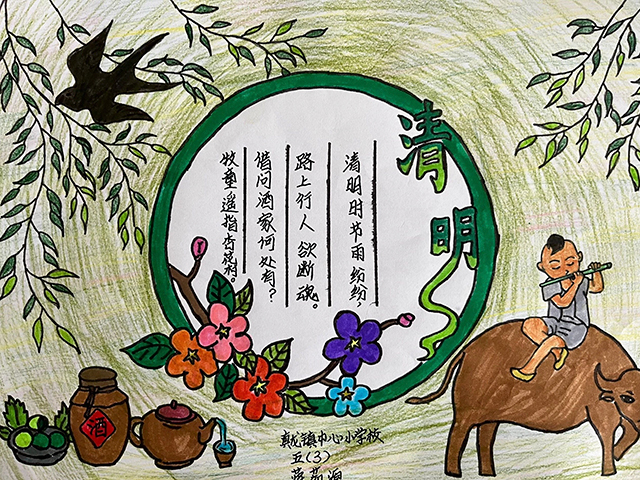 清明
清明时节雨纷纷，
路上行人欲断魂。
借问酒家何处有？
牧童遥指杏花村。
酒
真龙镇中心小学校
五(3)